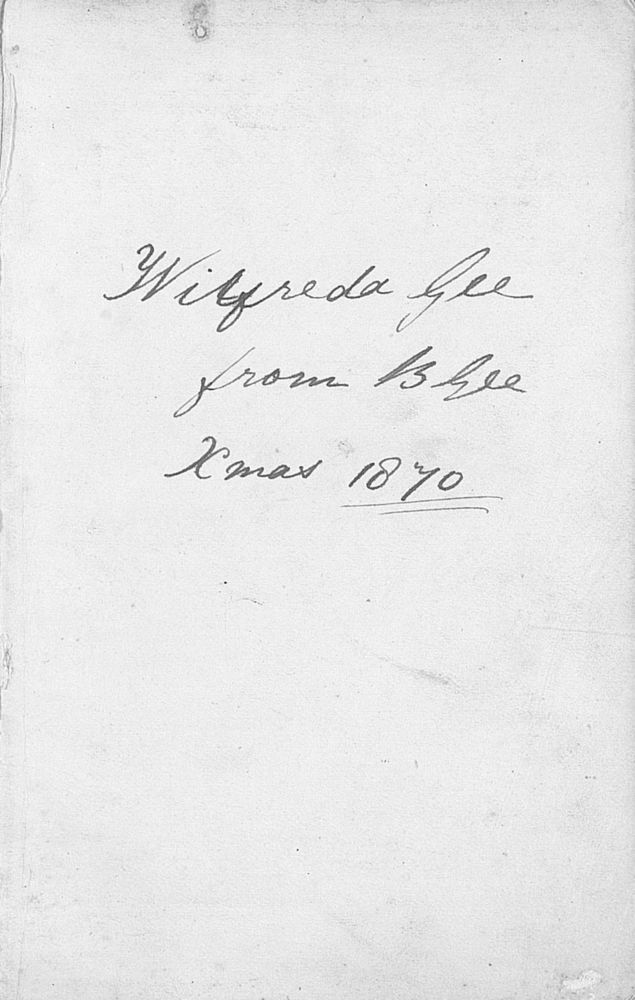 Wilfreda Gee
from B Gee
Xmas 1870